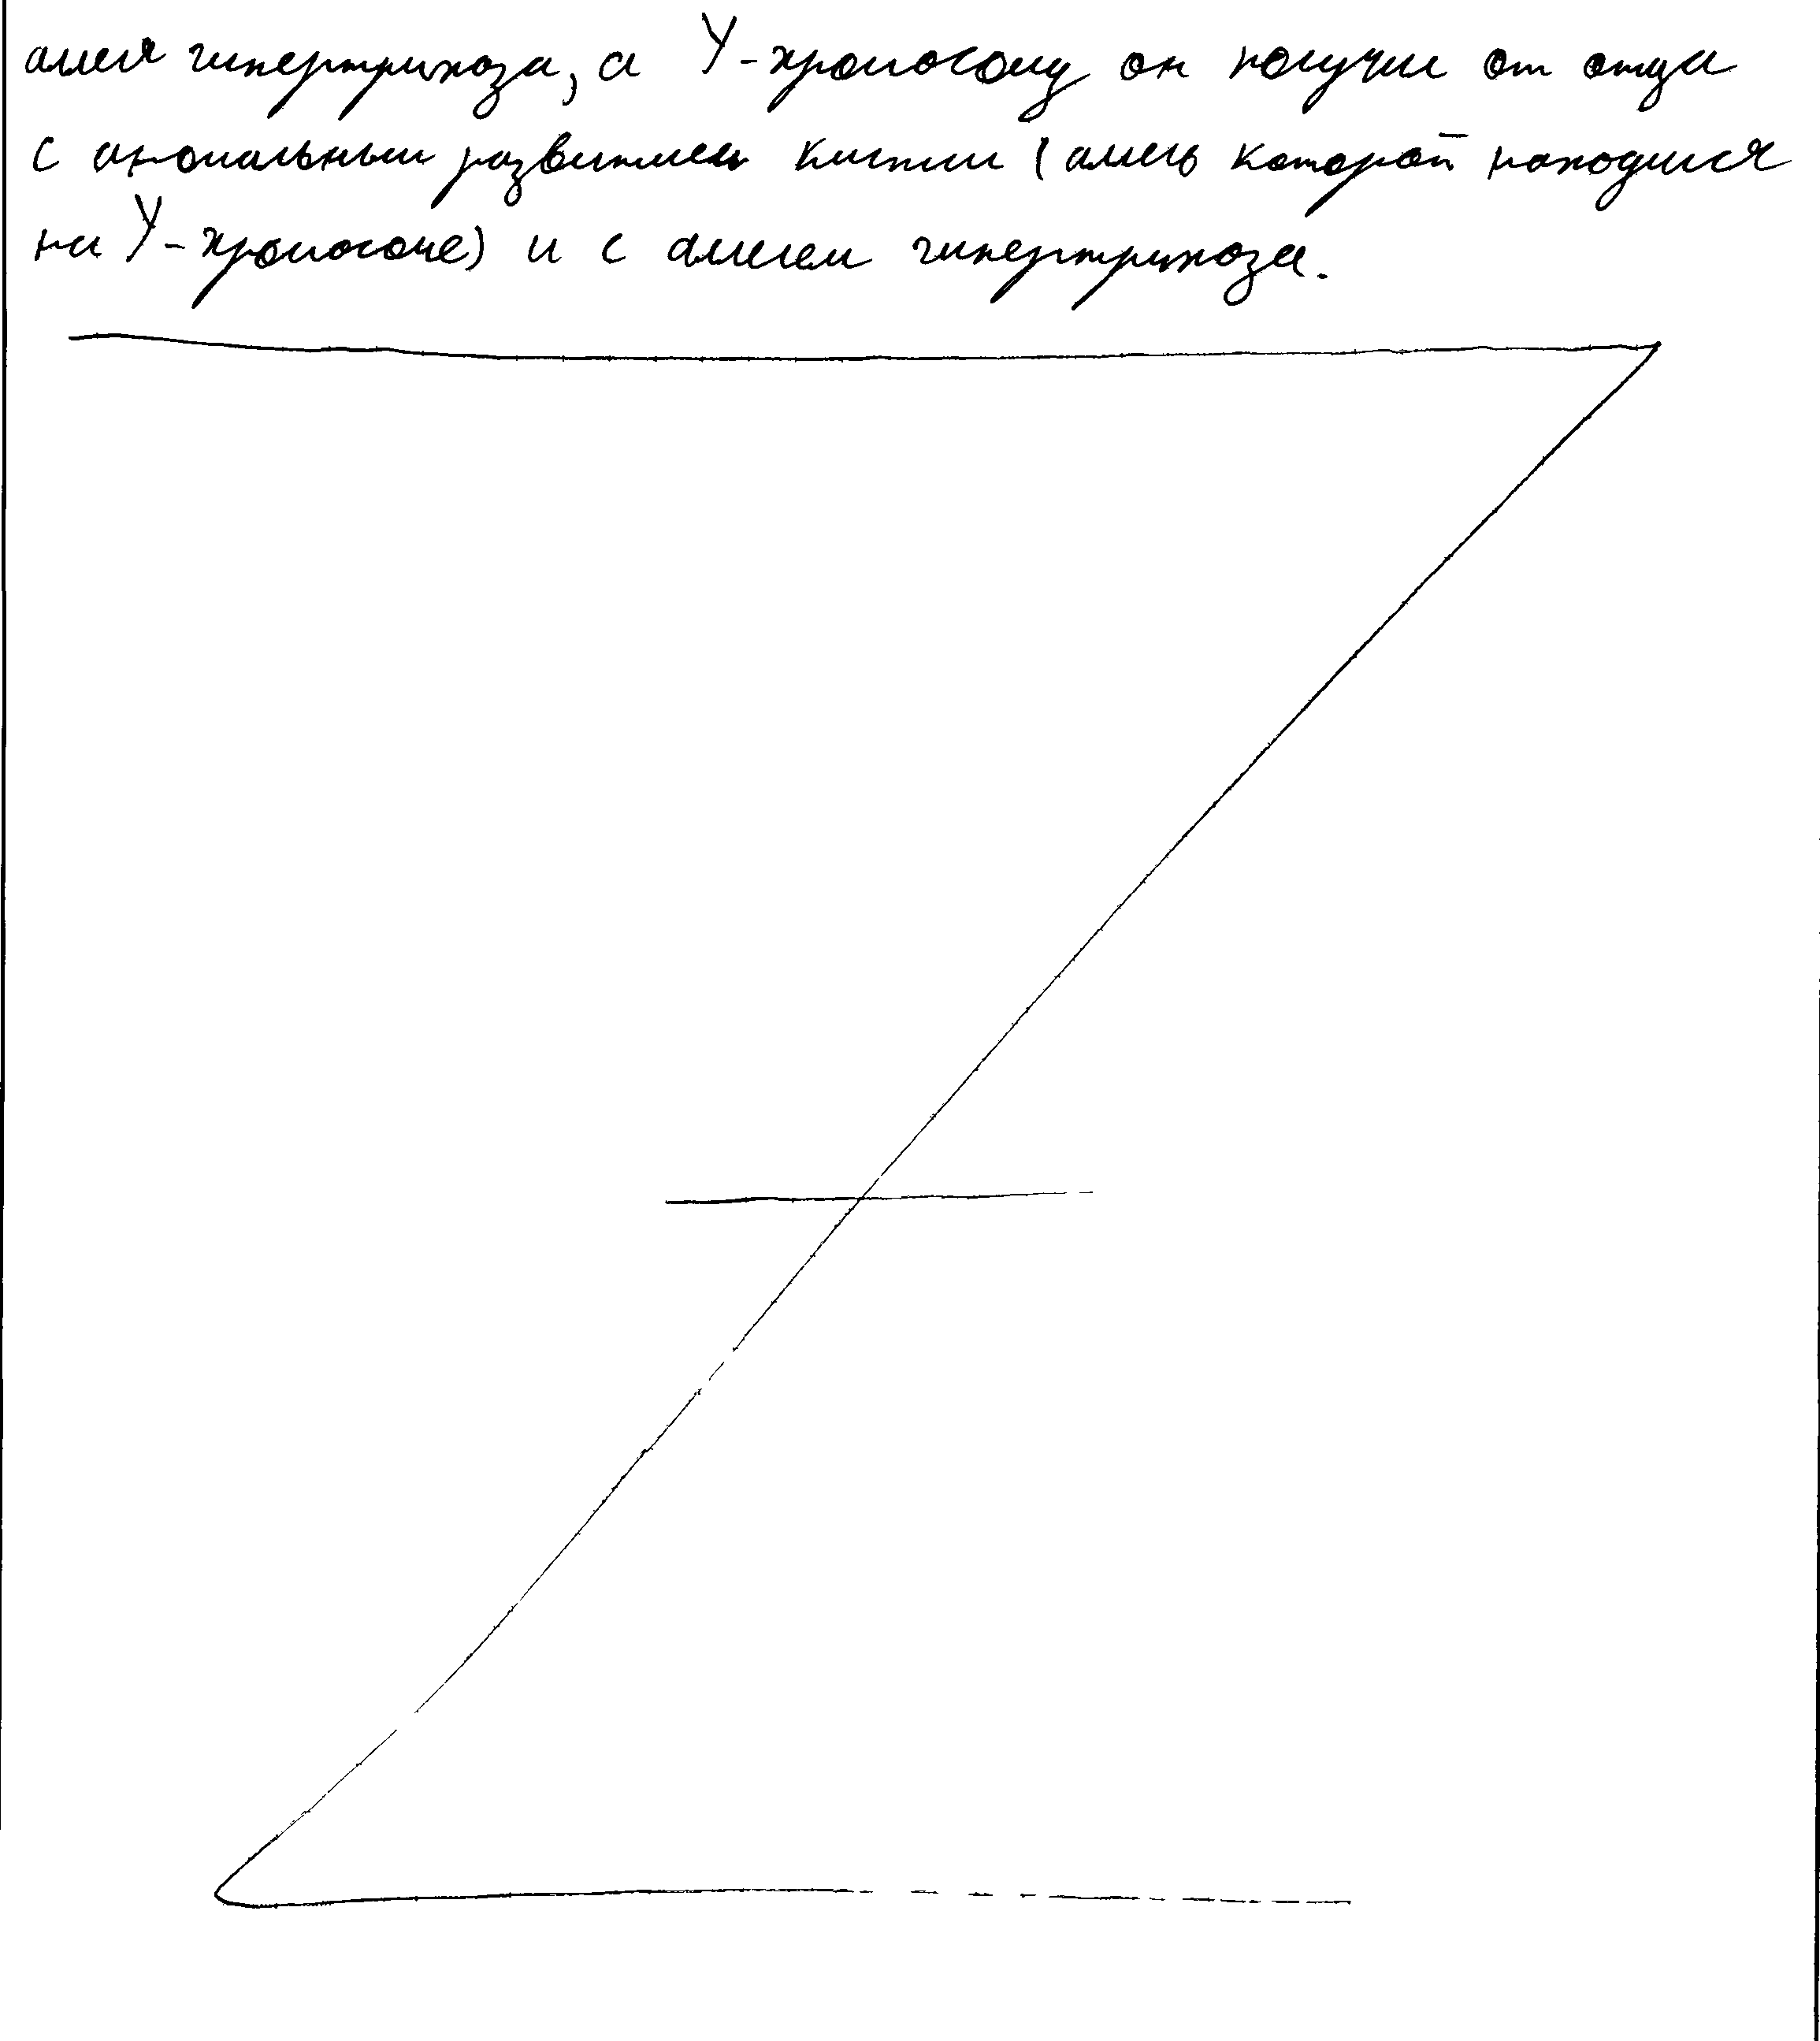 аллея гипертрихоза, а Y-хромосому он получил от отца
с аномальным развитием кисти (аллель которой находится
на Y-хромосоме) и с аллелем гипертрихоза.